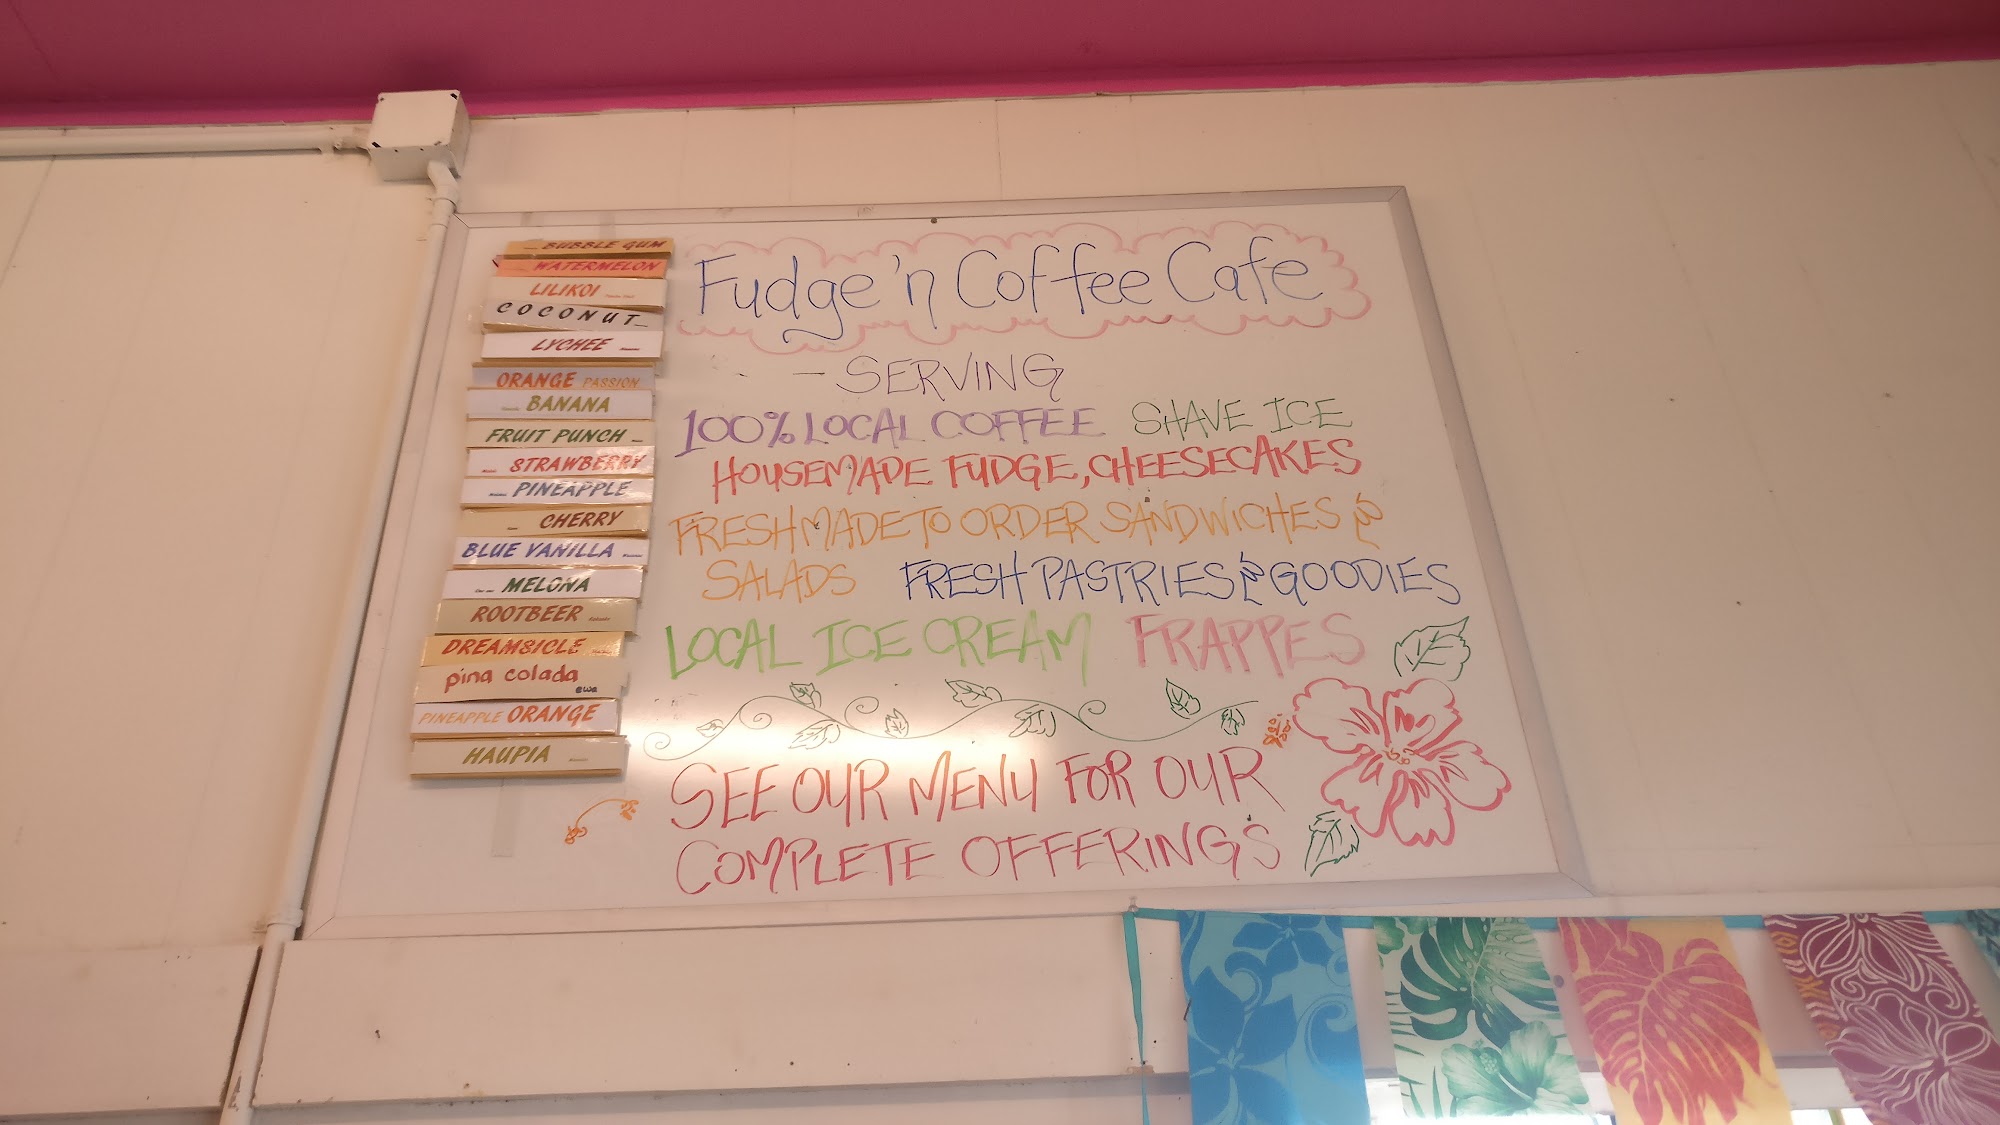 BUBBLE GUM
WATERMELON
LILIKOI
COCONUT
LYCHEE
ORANGE PASSION
BANANA
FRUIT PUNCH
STRAWBERRY
PINEAPPLE
CHERRY
BLUE VANILLA
MELONA
ROOTBEER
DREAMSICLE
pina colada
PINEAPPLE ORANGE
HAUPIA
Fudge 'n Coffee Cafe
- SERVING
100% LOCAL COFFEE SHAVE ICE
HOUSEMADE FUDGE, CHEESECAKES
FRESH MADE TO ORDER SANDWICHES &
SALADS FRESH PASTRIES & GOODIES
LOCAL ICE CREAM FRAPPES
SEE OUR MENU FOR OUR
COMPLETE OFFERINGS